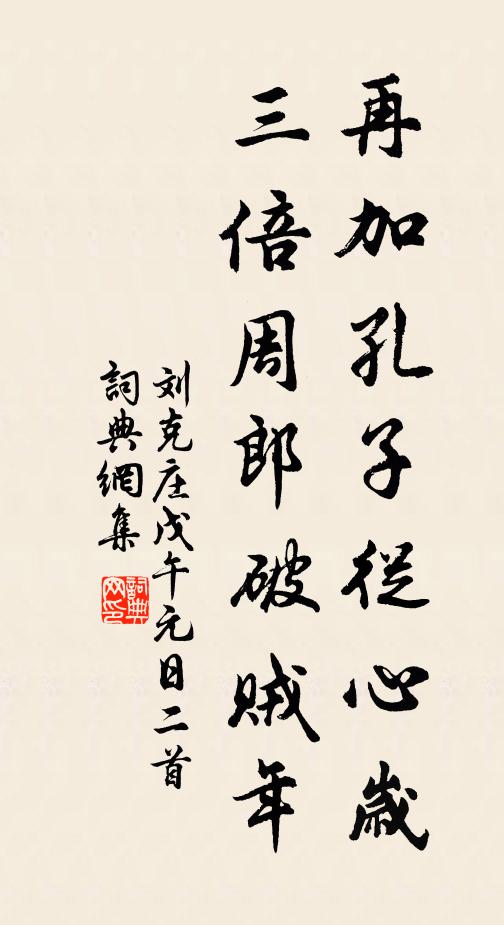 再加孔子從心歲
三倍周郎破賊年
刘克庄戊午元日二首
詞典網集
詞典网印